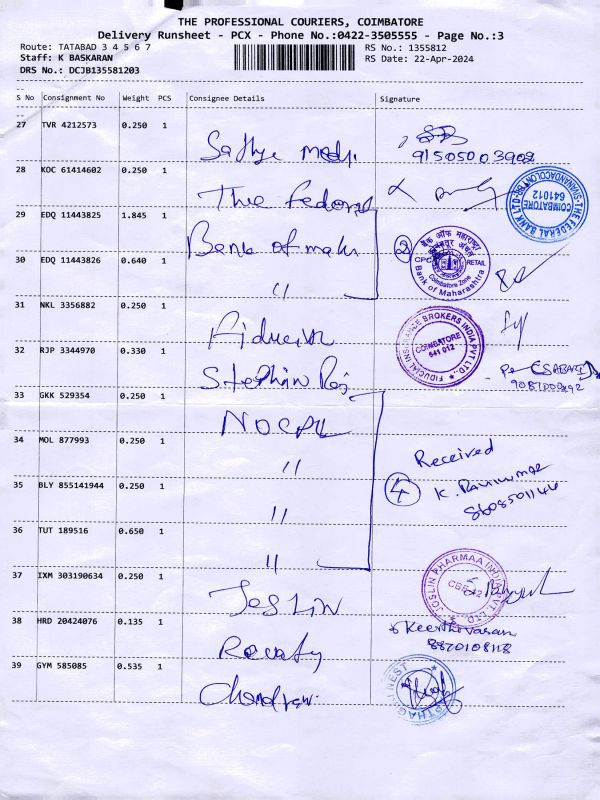 THE PROFESSIONAL COURIERS, COIMBATORE
Delivery Runsheet - PCX - Phone No.:0422-3505555 - Page No.:3
Route: TATABAD 3 4 5 6 7
RS No.: 1355812
Staff: K BASKARAN
RS Date: 22-Apr-2024
DRS No.: DCJB135581203
S No Consignment No Weight PCS Consignee Details Signature
27 TVR 4212573 0.250 1
9150500390
28 KOC 61414602 0.250 1 The Federal
SIVANANDACOLONY BR. THE FEDERAL BANK LTD
COIMBATORE
641012
29 EDQ 11443825 1.845 1 Bank of mah
2
बैंक ऑफ महाराष्ट्र
CPC RETAIL
Coimbatore Zone
Bank of Maharashtra
30 EDQ 11443826 0.640 1 "
31 NKL 3356882 0.250 1
FIDUCIAL INSURANCE BROKERS INDIA PVT. LTD.
COIMBATORE
641 012
32 RJP 3344970 0.330 1 Stephin Raj
33 GKK 529354 0.250 1 NOCPL
34 MOL 877993 0.250 1 "
Received
4
35 BLY 855141944 0.250 1 "
36 TUT 189516 0.650 1 "
37 IXM 303190634 0.250 1 Joslin
JOSLIN PHARMAA INDIA PVT. LTD.
CBE-12
38 HRD 20424076 0.135 1
Keerthivasan
39 GYM 585085 0.535 1